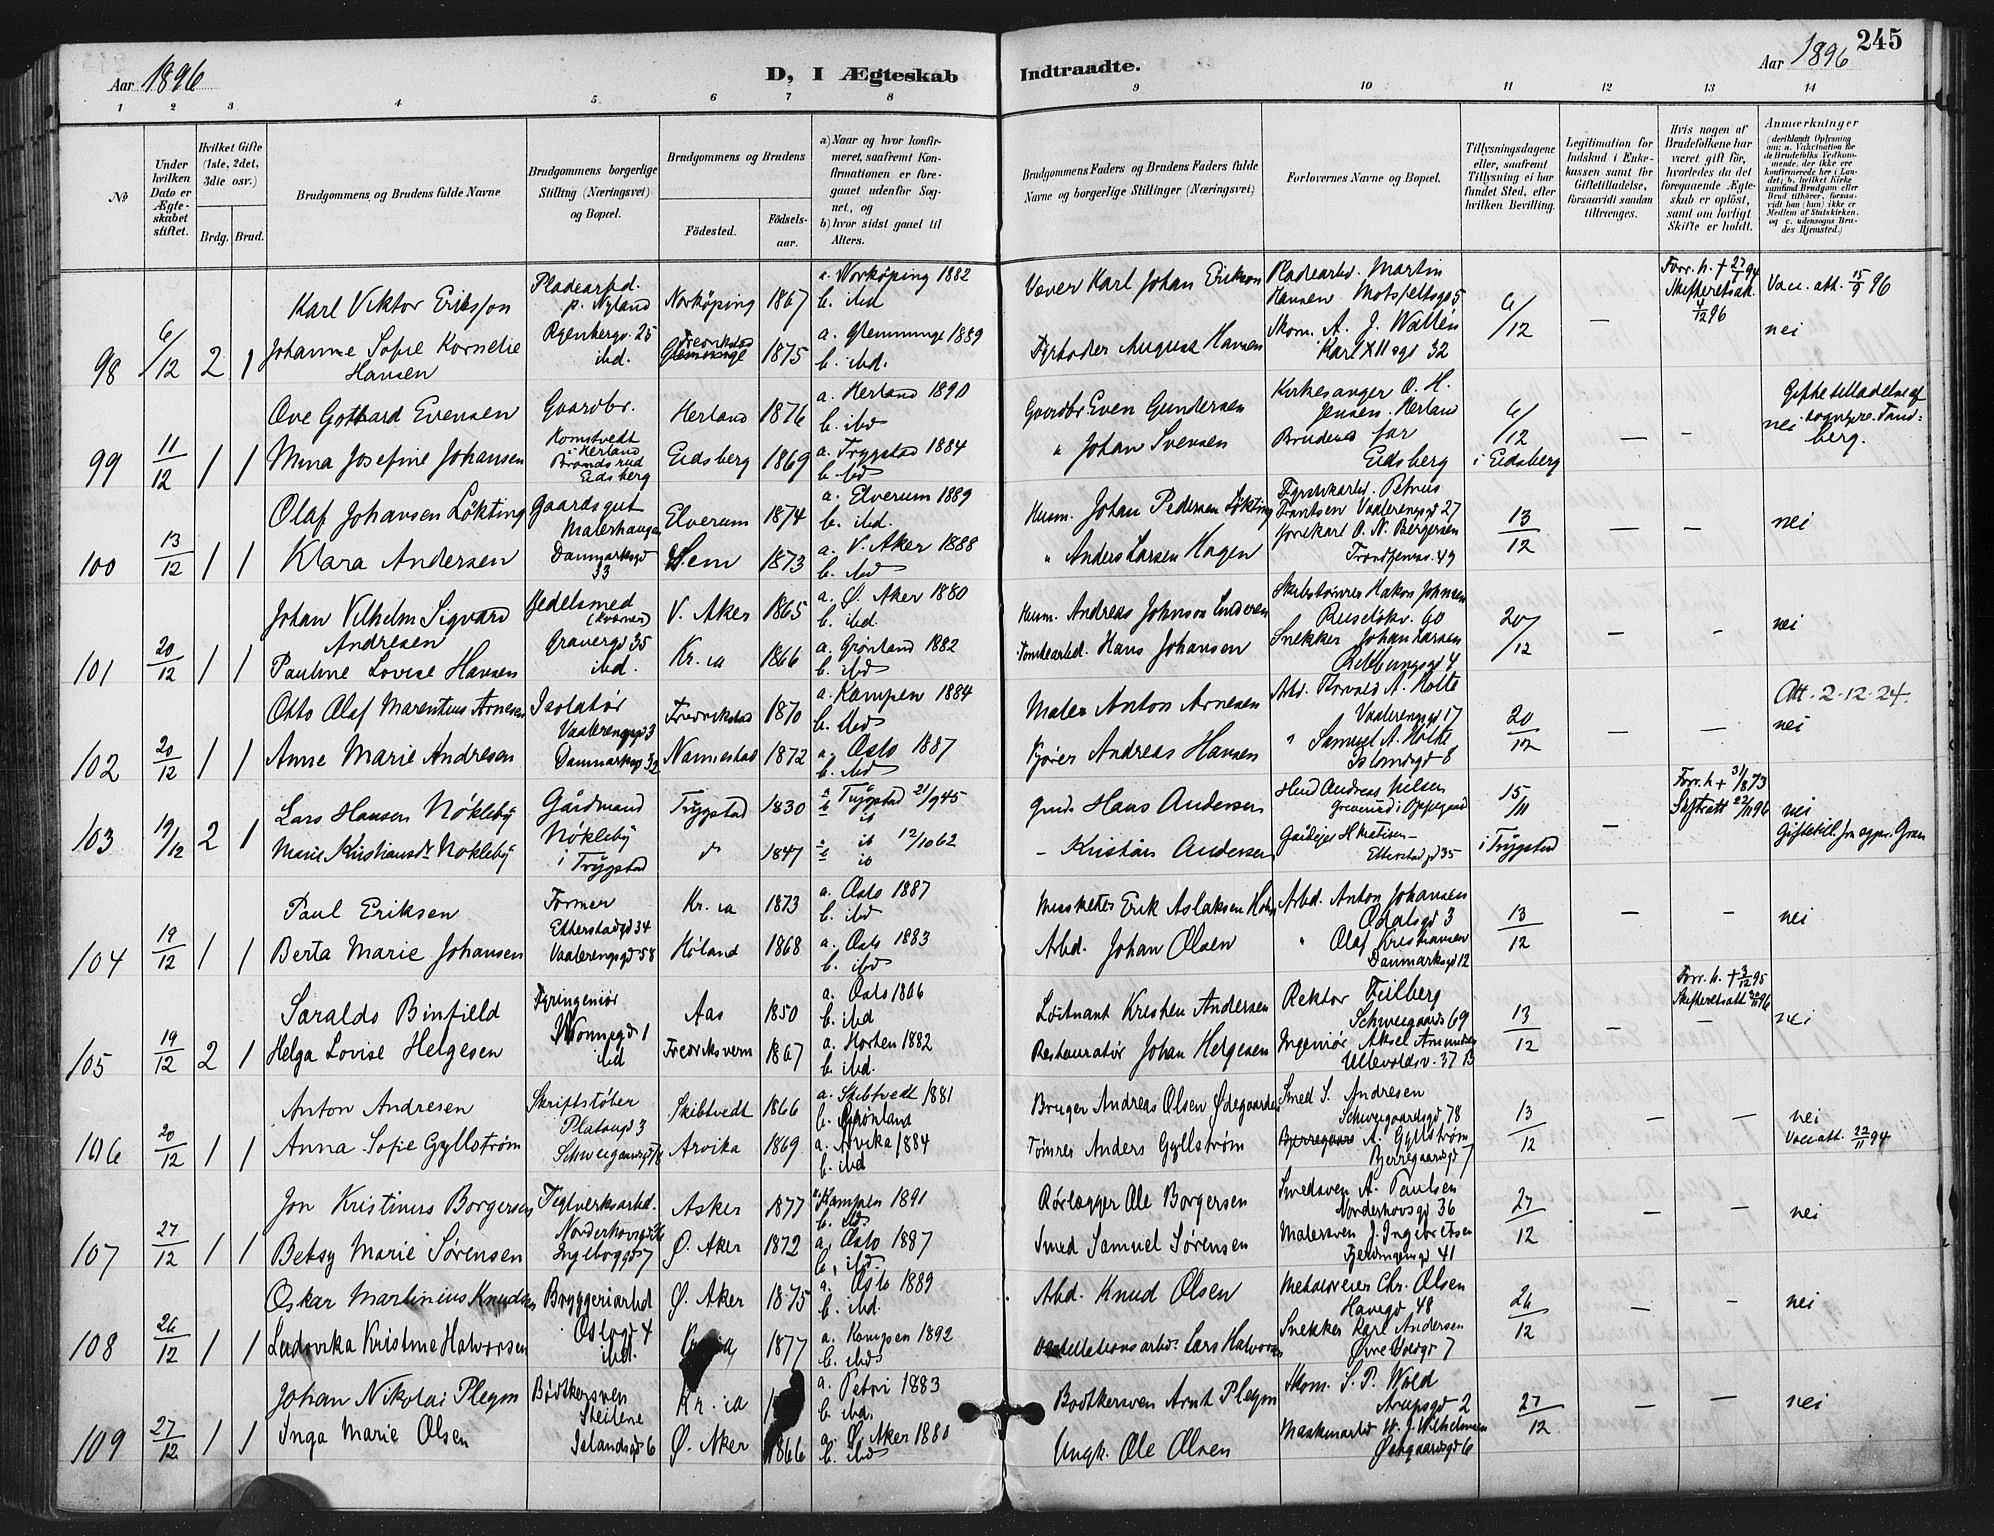 245
Aar 1896
D, I Ægteskab Indtraadte.
Aar 1896
1 2 3 4 5 6 7 8 9 10 11 12 13 14
No
Under hvilken Dato er Ægteskabet stiftet.
Hvilket Gifte (1ste, 2det, 3die osv.)
Brdg. Brud.
Brudgommens og Brudens fulde Navne
Brudgommens borgerlige Stilling (Næringsvei) og Bopæl.
Brudgommens og Brudens
Fødested.
Fødselsaar.
a) Naar og hvor konfirmeret, saafremt Konfirmationen er foregaaet udenfor Sognet, og
b) hvor sidst gaaet til Alters.
Brudgommens Faders og Brudens Faders fulde Navne og borgerlige Stillinger (Næringsvei)
Forlovernes Navne og Bopæl.
Tillysningsdagene eller, saafremt Tillysning ei har fundet Sted, efter hvilken Bevilling.
Legitimation for Indskud i Enkekassen samt for Giftetilladelse, forsaavidt saadan tiltrenges.
Hvis nogen af Brudefolkene har været gift før, hvorledes da det foregaaende Ægteskab er opløst, samt om lovligt Skifte er holdt.
Anmærkninger
98 6/12 2 1
Karl Viktor Eriksson
Pladearbd. p. Nyland
Norköping 1867
a. Norköping 1882
b. ibd
Væver Karl Johan Erikson
Pladearbd. Martin Hansen Motzfeltsgd 5
6/12
—
Forr. h. + 27/1 94
4/12 96
Vacc. att. 15/9 96
Johanne Sofie Kornelie Hansen
Ryenbergv. 25
ibd.
Fredrikstad Glemminge 1875
a. Glemminge 1889
b. ibd.
Fyrbøder August Hansen
Skom. A. J. Wallén
Karl XII sgd 32
nei
99 11/12 1 1
Ove Gotthard Evensen
Gaardbr.
Komstvedt i Herland
Herland 1876
a. Herland 1890
b. ibd
Gaardbr Even Gundersen
Kirkesanger O. H. Jensen. Herland
6/12
i Eidsberg
— —
nei
Giftetilladelse af sognpre. Tandberg.
Mina Josefine Johansen
Brandsrud Eidsberg
Eidsberg 1869
a. Trygstad 1884
b. ibd
" Johan Svensen
Brudens far
Eidsberg
100 13/12 1 1
Olaf Johansen Løkting
Gaardsgut
Malerhaugen
Elverum 1874
a. Elverum 1889
b. ibd.
Husm. Johan Pedersen Løkting
Fyrstikarbd. Petrus Frantsen Vaalerengsgd 27
13/12
— —
nei
Klara Andersen
Danmarksgd 33
Hem 1873
a. V. Aker 1888
b. ibd
" Anders Larsen Hagen
O. N. Bergersen
Trondhjemsv. 49
101 20/12 1 1
Johan Vilhelm Sigvard Andresen
Hedelsmed (Kværner)
V. Aker 1865
a. Ø. Aker 1880
b. ibd.
Husm. Andreas Johnson Enderen
Skibstømrer Hakon Johnsen
Ruseløkv. 60
20/12
— —
nei
Pauline Lovise Hansen
Gravergd 35
ibd.
Kr.ia 1866
a. Grønland 1882
b. ibd
Tomtearbd. Hans Johansen
Snekker Johan Larsen
102 20/12 1 1
Otto Olaf Marentius Arnesen
Isolatør
Vaalerengsgd 3
Fredrikstad 1870
a. Kampen 1884
b. ibd
Maler Anton Arnesen
Arbd. Torvald A. Holte
Vaalerengsgd 17
20/12
— —
Att. 2-12-24.
nei
Anne Marie Andresen
Danmarksgd 32
Nannestad 1872
a. Oslo 1887
b. ibd
Kjører Andreas Hansen
" Samuel A. Holte
Islandsgd 8
103 19/12 2 1
Lars Hansen Nökleby
Gårdmand
Nökleby i Trygstad
Trygstad 1830
a Trygstad 21/9 45
b ib
Gmd. Hans Andersen
Andreas Nilsen
Greverud i Oppegaard
15/11
i Trygstad
—
Forr. h + 31/8 73
Skiftratt 22/11 96
nei
Giftetill. fra sgpr. Gran
Marie Kristiansdr Nökleby
do 1847
a ib 12/10 62
b ib
- Kristian Andersen
Gaardejer H Kristisen
Etterstadgd 35
104 19/12 1 1
Paul Eriksen
Former
Etterstadgd 34
Kr.ia 1873
a. Oslo 1887
b. ibd
Erik Aslaksen
Arbd. Anton Johansen
Odalsgd 3
13/12
— —
nei
Berta Marie Johansen
Vaalerengsgd 58
Høland 1868
a. Oslo 1883
b. ibd
Arbd. Johan Olsen
" Olaf Kristiansen
Danmarksgd 12
105 19/12 2 1
Saralds Binfield
Fyringeniør
gd 1
Aas 1850
a. Oslo 1866
b. ibd
Löitnant Kristen Andersen
Rektor Feilberg
Schweigaards 69
13/12
— —
Forr. h. + 3/12 95
nei
Helga Lovise Helgesen
ibd
Fredriksvern 1867
a. Horten 1882
b. ibd.
Restauratør Johan Helgesen
Ingeniør Aksel Amundsen
Ullevoldsv. 37 B
106 20/12 1 1
Anton Andresen
Skriftstøber
Platousgd 3
Skibtvedt 1866
a. Skibtvedt 1881
b. Grønland
Bruger Andreas Olsen Ødegaarden
Smed S. Andresen
Schweigaardsgd 78
13/12
— —
nei
Anna Sofie Gyllström
Schweigaardsgd 78
Arvika 1869
a. Arvika 1884
b. ibd
Tømrer Anders Gyllström
A. Gyllström
Bjerregaardsgd 7
Vacc att. 22/11 94
107 27/12 1 1
Jon Kristinus Borgersen
Teglverksarbd.
Norderhovsgd 36
Asker 1877
a. Kampen 1891
b. ibd.
Rørlægger Ole Borgersen
Smedsven A. Paulsen
Norderhovsgd 36
27/12
— —
nei
Betsy Marie Sørensen
Ingeborggd 7
Ø. Aker 1872
a. Oslo 1887
b. ibd.
Smed Samuel Sørensen
Malersven J. Ingebretsen
gd 41
108 26/12 1 1
Oskar Martinius Knudsen
Bryggeriarbd
Oslogd 4
Ø. Aker 1875
a. Oslo 1889
b. ibd.
Arbd. Knud Olsen
Chr. Olsen
Havegd 48
26/12
— —
nei
Ludovika Kristine Halvorsen
ibd.
Kr.ia 1877
a. Kampen 1892
b. ibd
Lars Halvorsen
Snekker Karl Andersen
7
109 27/12 1 1
Johan Nikolai Pleym
Bødtkersven
Steilene
Kr.ia
a. Petri 1883
b. ibd.
Bødtkersven Arnt Pleym
Skom. S. P. Wold
Arupsgd 2
27/12
— —
nei
Inga Marie Olsen
Islandsgd 6
Ø. Aker 1866
a. Ø. Aker 1880
b. ibd
Ungk. Ole Olsen
Maskinarbd W. J. Wilhelmsen
gd 6